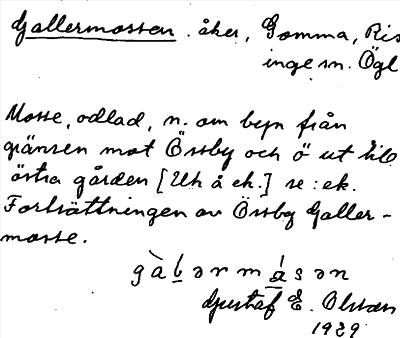 Gallermossen. åker, Gomma, Ris
inge sn. Ögl
Mosse, odlad, n. om byn från
gränsen mot Össby och ö ut till
östra gården [Uh å ek.] se: ek.
Fortsättningen av Össby Galler-
mosse.
Gustaf E. Olsson
1929